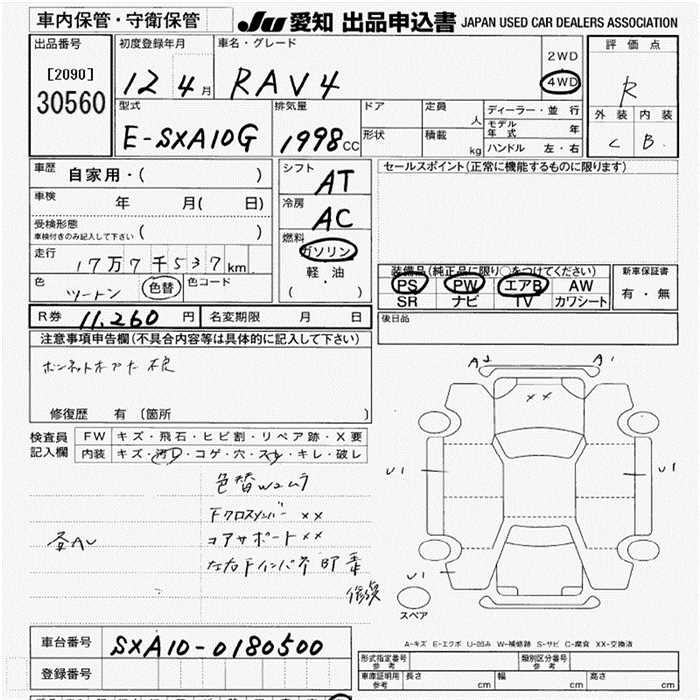 車内保管・守衛保管
JU 愛知 出品申込書 JAPAN USED CAR DEALERS ASSOCIATION
出品番号
[2090]
30560
初度登録年月
12 4 月
車名・グレード
RAV4
2WD
4WD
評価点
R
外装 内装
C B
型式
E-SXA10G
排気量
1998 CC
ドア
形状
定員
人
積載
kg
ディーラー・並行
モデル年式 年
ハンドル 左・右
車歴 自家用・( )
車検 年 月( 日)
受検形態
車検付きのみ記入して下さい ( )
走行 17万7千537km
色 ツートン 色替 色コード
シフト AT
冷房 AC
燃料
ガソリン
軽・油
( ・ )
セールスポイント(正常に機能するものに限ります)
装備品(純正品に限り○をつけてください)
PS PW エアB AW
SR ナビ TV カワシート
新車保証書
有・無
後日品
R券 11,260 円 名変期限 月 日
注意事項申告欄(不具合内容等は具体的に記入して下さい)
不良
修復歴 有 〔箇所 〕
検査員
記入欄
FW キズ・飛石・ヒビ割・リペア跡・X要
内装 キズ・汚レ・コゲ・穴・スレ・キレ・破レ
色替Wユムラ
下クロスメンバー ××
コアサポート ××
左右下インパネ
A2 A1
××
U1 U1
U1
スペア
A-キズ E-エクボ U-凹み W-補修跡 S-サビ C-腐食 XX-交換済
車台番号 SXA10-0180500
登録番号
形式指定番号
参考
類別区分番号
参考
車庫証明用
参考
長さ cm 幅 cm 高さ cm